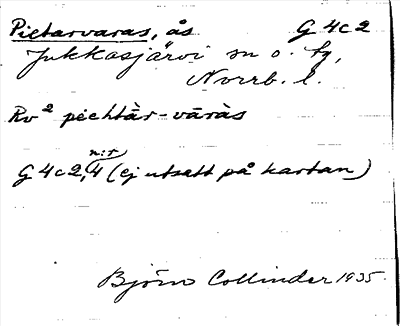 Pietarvaras, ås G 4c2
Jukkasjärvi sn o. tg,
Norrb. l.
Rv² pèchtàr-vāràs
n:r
G 4c2,4 (ej utsatt på kartan)
Björn Collinder 1935.